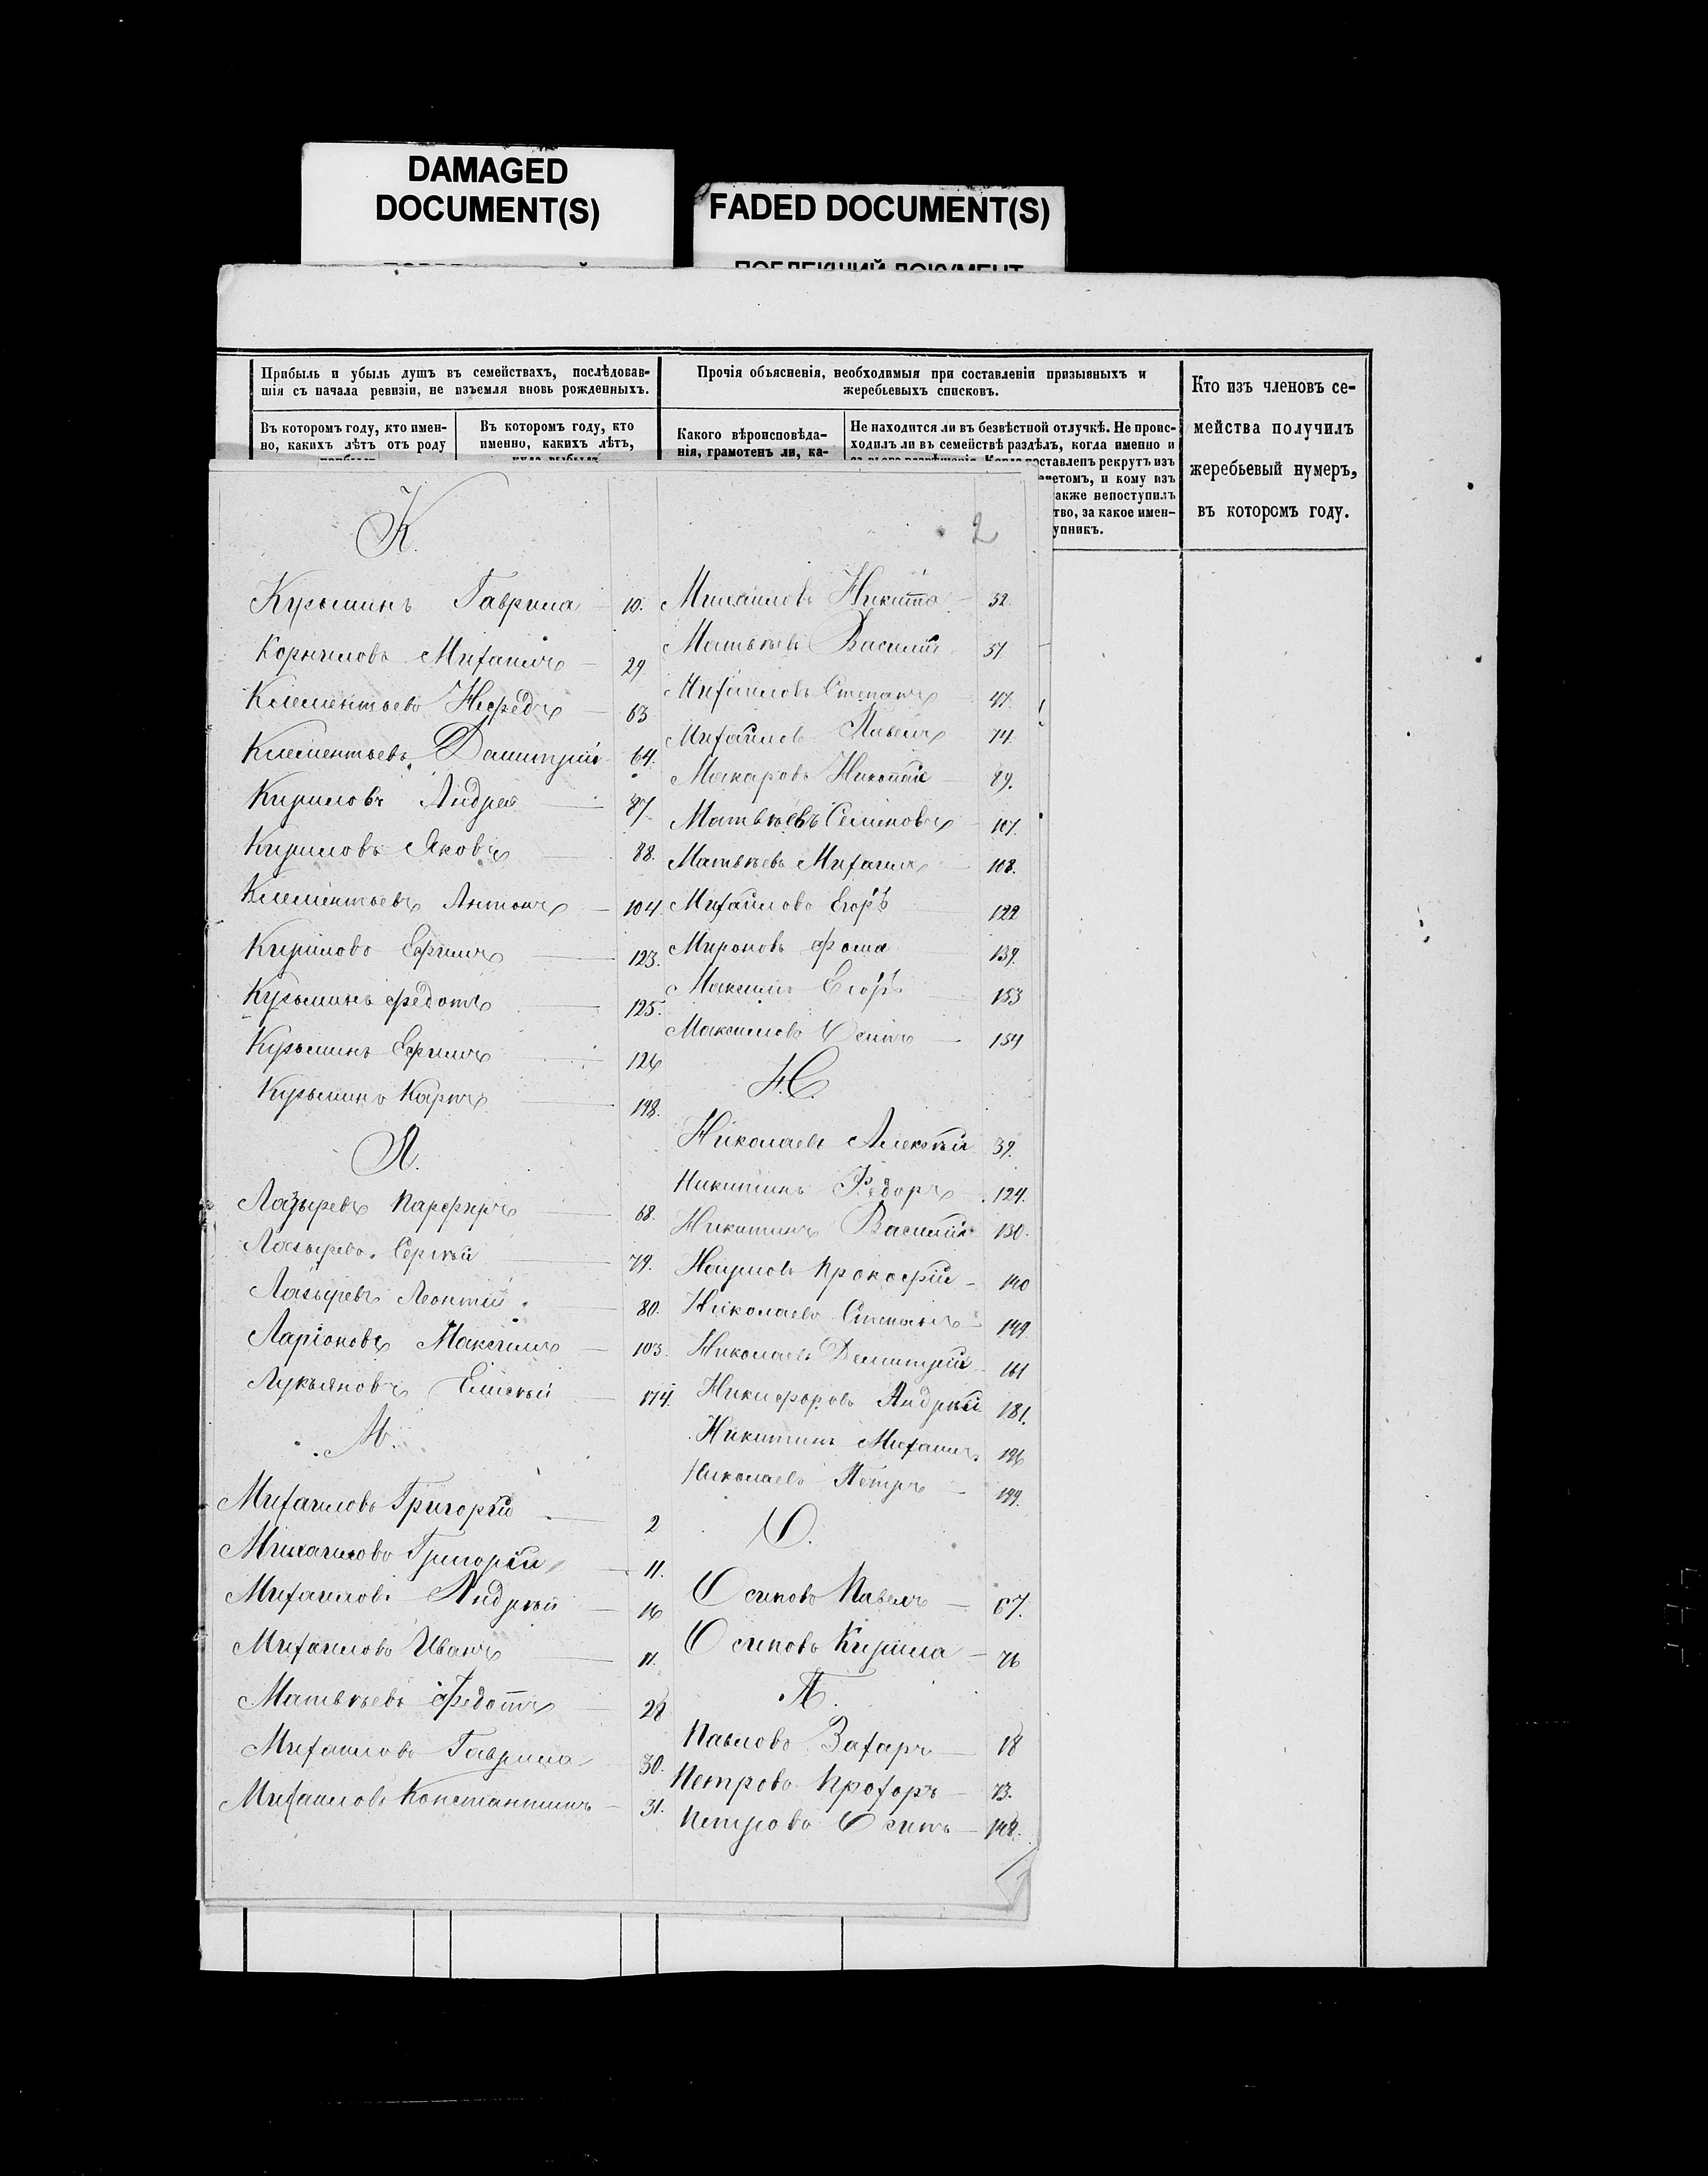 DAMAGED
DOCUMENT(S)
FADED DOCUMENT(S)
ПОБЛЕКШИЙ ДОКУМЕНТ
Прибыль и убыль душъ въ семействахъ, послѣдовав-
шія съ начала ревизіи, не изъемля вновь рожденныхъ.
Въ которомъ году, кто имен-
но, какихъ лѣтъ отъ роду
Въ которомъ году, кто
именно, какихъ лѣтъ,
Прочія объясненія, необходимыя при составленіи призывныхъ и
жеребьевыхъ списковъ.
Какого вѣроисповѣда-
нія, грамотенъ ли, ка-
Не находится ли въ безвѣстной отлучкѣ. Не проис-
ходилъ ли въ семействѣ раздѣлъ, когда именно и
поставленъ рекрутъ изъ
четомъ, и кому изъ
акже непоступилъ
тво, за какое имен-
упникъ.
Кто изъ членовъ се-
мейства получилъ
жеребьевый нумеръ,
въ которомъ году.
2
К.
Кузьминъ Гаврила 10.
Корниловъ Михаилъ 29
Клементьевъ Нефедъ 63
Клементьевъ Дмитрій 64.
Кириловъ Андрей 87
Кириловъ Яковъ 88.
Клементьевъ Антонъ 104
Кириловъ Ефимъ 123.
Кузьминъ Федотъ 125.
Кузьминъ Ефимъ 126
Кузьминъ Карпъ 198.
Л.
Лазыревъ Парфиръ 68.
Лазыревъ Сергѣй 79.
Лазыревъ Леонтій 80.
Ларіоновъ Максимъ 103.
Лукьяновъ Елисѣй 174.
М.
Михаиловъ Григорій 2
Михаиловъ Григорій 11.
Михаиловъ Андрѣй 16
Михаиловъ Иванъ 11.
Матвѣевъ Федотъ 28
Михаиловъ Гаврила 30.
Михаиловъ Константинъ 31.
Михаиловъ Никита 32.
Матвѣевъ Василій 37
Михаиловъ Степанъ 47.
Михаиловъ Павелъ 74.
Макаровъ Николай 89.
Матвѣевъ Семеновъ 107.
Матвѣевъ Михаилъ 108.
Михаиловъ Егоръ 122
Мироновъ Фома 139.
Максимъ Егоръ 153
Максимовъ Осипъ 154
Н.
Николаевъ Алексѣй 39.
Никитинъ Федоръ 124.
Никитинъ Василій 130.
Наумовъ Прокофій 140
Николаевъ Степанъ 149.
Николаевъ Демитрій 161
Никифоровъ Андрѣй 181.
Никитинъ Михаилъ 196
Николаевъ Петръ 199.
О.
Осиповъ Павелъ 67.
Осиповъ Кирила 76
П.
Павловъ Захаръ 18
Петровъ Прохоръ 73.
Петровъ Осипъ 148.